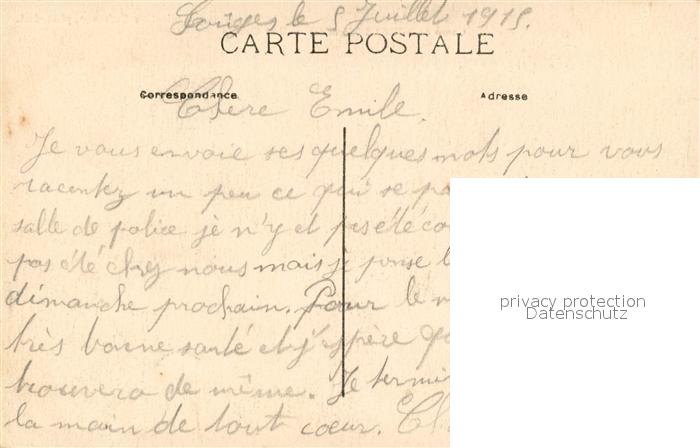 le 5 Juillet 1915.
CARTE POSTALE
Correspondance
Adresse
Chere Emile.
Je vous envoie ses quelques mots pour vous
racontez un peu ce qui se pa
salle de police je n'y et pas été co
pas été chez nous mais je pense l
dimanche prochain. Pour le m
très bonne santé et j'espère qu
trouvera de même. Je termi
la main de tout coeur. Cl
privacy protection
Datenschutz